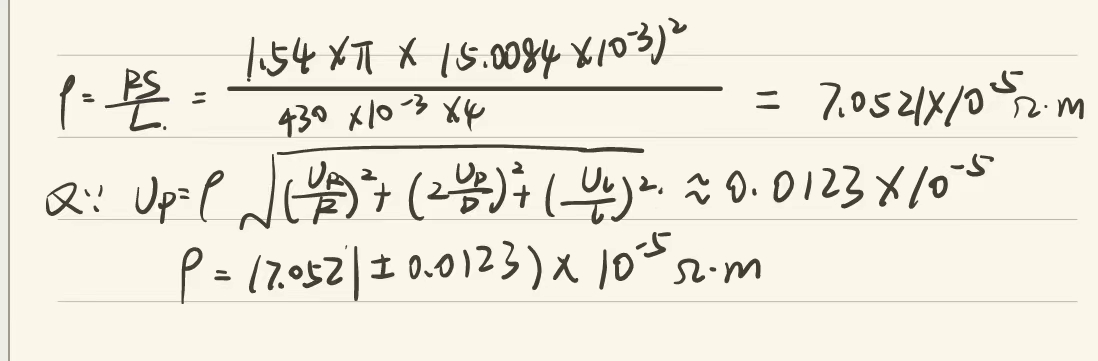 ρ = RS/L. = 1.54 × π × (5.0084 × 10⁻³)² / 430 × 10⁻³ × 4 = 7.0521 × 10⁻⁵ Ω·m
又∵ Uρ = ρ √(U_R/R)² + (2 U_D/D)² + (U_L/L)². ≈ 0.0123 × 10⁻⁵
ρ = (7.0521 ± 0.0123) × 10⁻⁵ Ω·m